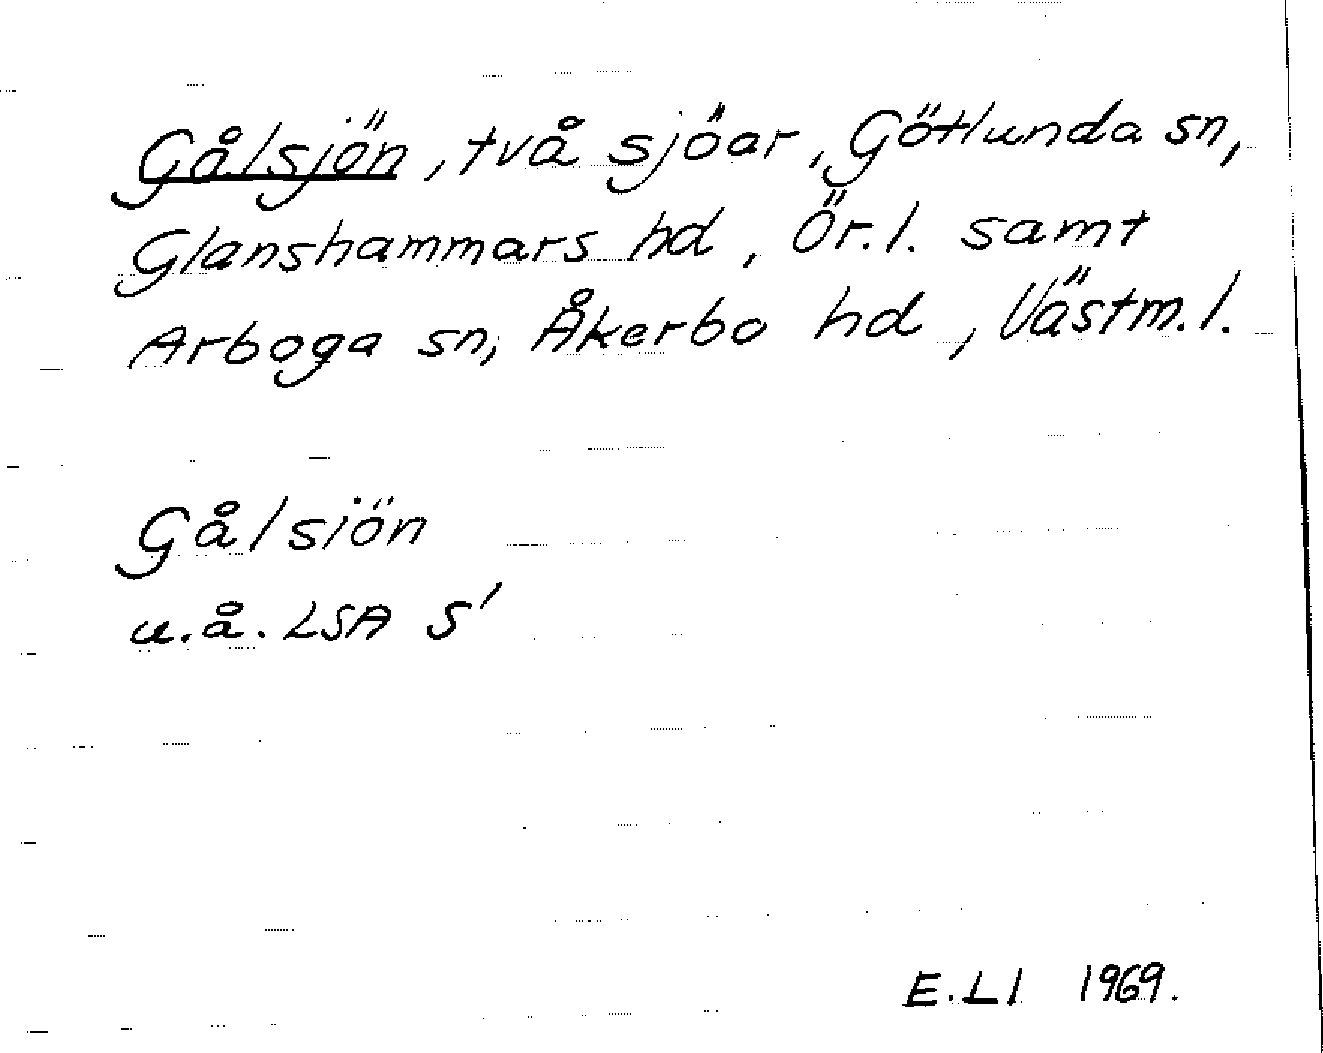 Gålsjön, två sjöar, Götlunda sn,
Glanshammars hd, Ör.l. samt
Arboga sn, Åkerbo hd, Västm.l.
Gålsiön
u.å. LSA S'
E.LI 1969.